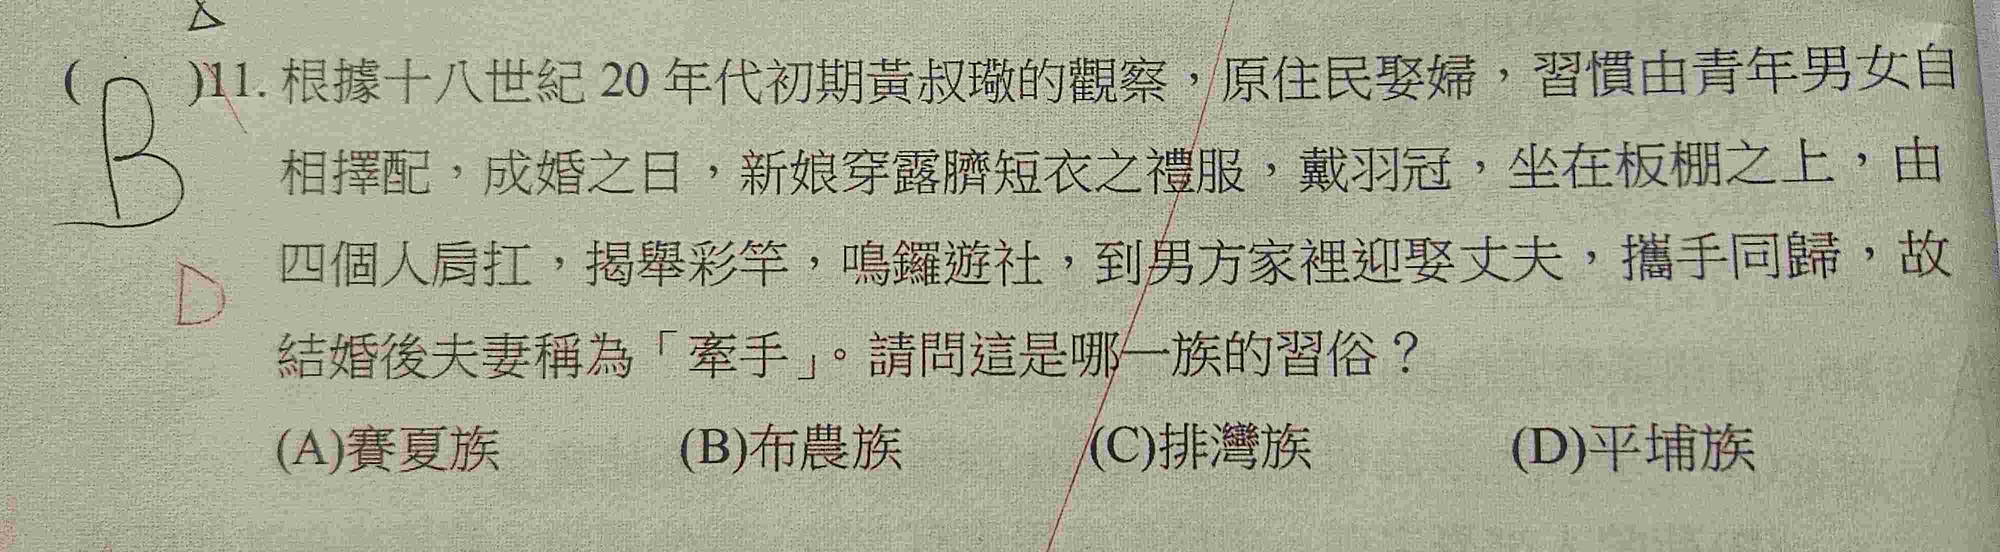 ( B )11. 根據十八世紀 20 年代初期黃叔璥的觀察，原住民娶婦，習慣由青年男女自
相擇配，成婚之日，新娘穿露臍短衣之禮服，戴羽冠，坐在板棚之上，由
四個人肩扛，揭舉彩竿，鳴鑼遊社，到男方家裡迎娶丈夫，攜手同歸，故
D
結婚後夫妻稱為「牽手」。請問這是哪一族的習俗？
(A)賽夏族 (B)布農族 (C)排灣族 (D)平埔族